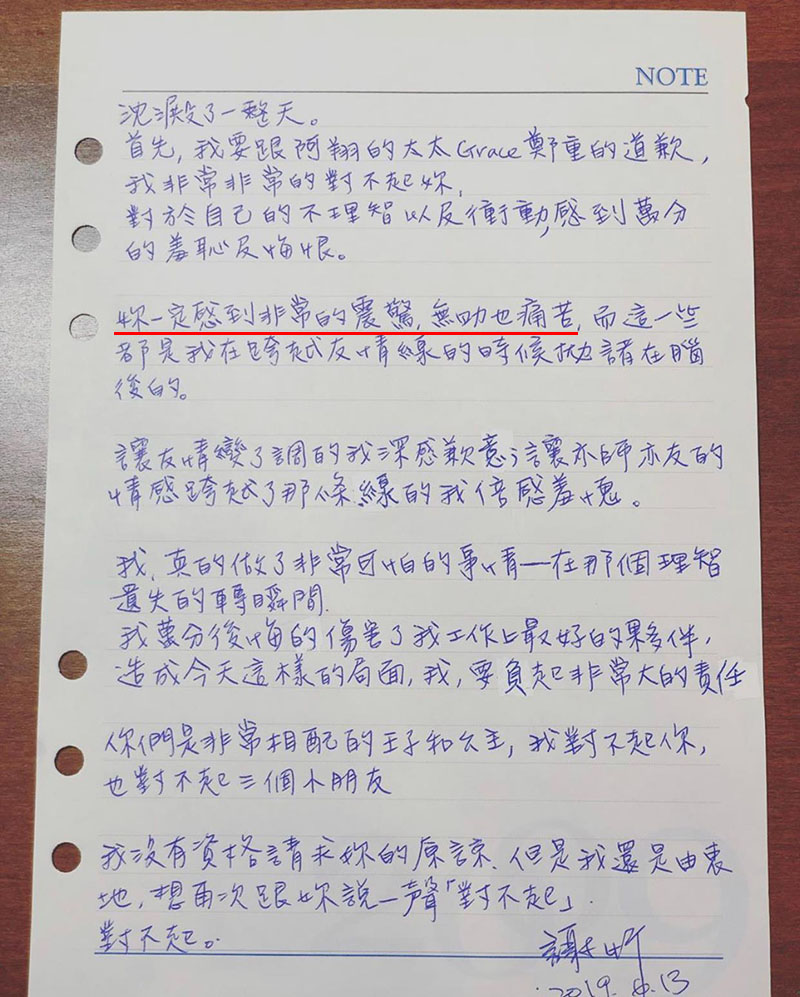 NOTE
沈澱了一整天。
首先,我要跟阿翔的太太Grace鄭重的道歉,
我非常非常的對不起妳,
對於自己的不理智以及衝動,感到萬分
的羞恥及悔恨。
妳一定感到非常的震驚,無助也痛苦,而這一些
都是我在跨越友情線的時候拋諸在腦
後的。
讓友情變了調的我深感歉意;讓亦師亦友的
情感跨越了那條線的我倍感羞愧。
我,真的做了非常可怕的事情—在那個理智
遺失的轉瞬間.
我萬分後悔的傷害了我工作上最好的夥伴,
造成今天這樣的局面,我,要負起非常大的責任
你們是非常相配的王子和公主,我對不起你,
也對不起三個小朋友
我沒有資格請求妳的原諒.但是我還是由衷
地,想再次跟妳說一聲「對不起」.
對不起。
2019.4.13